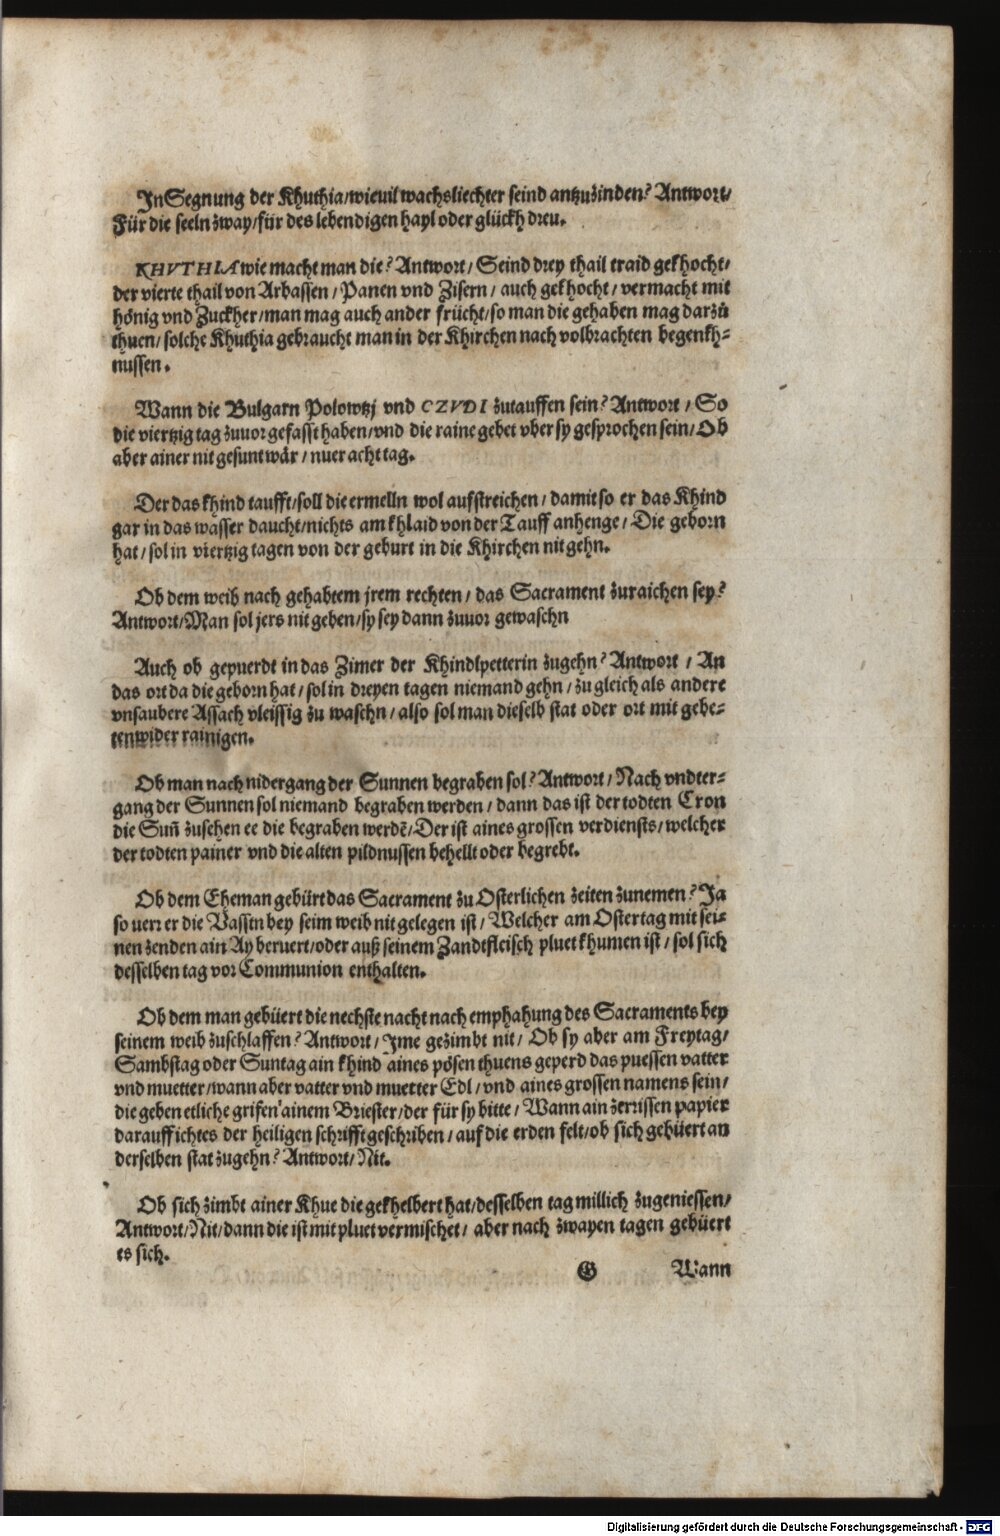 In Segnung der Khuthia/wieuil wachsliechter seind antzuzinden? Antwort/
Für die seeln zway/für des lebendigen hayl oder glückh dreu.
KHVTHIA wie macht man die? Antwort/ Seind drey thail traid gekhocht/
der vierte thail von Arbassen/ Panen vnd Zisern/ auch gekhocht/ vermacht mit
hönig vnd Zuckher/man mag auch ander frücht/so man die gehaben mag darzů
thuen/ solche Khuthia gebraucht man in der Khirchen nach volbrachten begenkh-
nussen.
Wann die Bulgarn Polowtzj vnd CZVDI zutauffen sein? Antwort/ So
die viertzig tag zuuor gefasst haben/vnd die raine gebet vber sy gesprochen sein/Ob
aber ainer nit gesunt wär/ nuer acht tag.
Der das khind taufft/soll die ermelln wol aufstreichen/ damit so er das Khind
gar in das wasser daucht/nichts am khlaid von der Tauff anhenge/ Die geborn
hat/ sol in viertzig tagen von der geburt in die Khirchen nit gehn.
Ob dem weib nach gehabtem jrem rechten/ das Sacrament zuraichen sey?
Antwort/Man sol jers nit geben/sy sey dann zuuor gewaschn
Auch ob gepuerdt in das Zimer der Khindlpetterin zugehn? Antwort/ An
das ort da die geborn hat/ sol in dreyen tagen niemand gehn/ zu gleich als andere
vnsaubere Assach vleissig zu waschn/ also sol man dieselb stat oder ort mit gebe-
ten wider rainigen.
Ob man nach nidergang der Sunnen begraben sol? Antwort/ Nach vndter-
gang der Sunnen sol niemand begraben werden/ dann das ist der todten Cron
die Sun̄ zusehen ee die begraben werdē/ Der ist aines grossen verdiensts/ welcher
der todten painer vnd die alten pildnussen behellt oder begrebt.
Ob dem Eheman gebürt das Sacrament zu Osterlichen zeiten zunemen? Ja
so uerr er die Vassten bey seim weib nit gelegen ist/ Welcher am Ostertag mit sei-
nen zenden ain Ay beruert/oder auß seinem Zandtfleisch pluet khumen ist/ sol sich
desselben tag vor Communion enthalten.
Ob dem man gebüert die nechste nacht nach emphahung des Sacraments bey
seinem weib zuschlaffen? Antwort/ Ime gezimbt nit/ Ob sy aber am Freytag/
Sambstag oder Suntag ain khind aines pösen thuens geperd das puessen vatter
vnd muetter/wann aber vatter vnd muetter Edl/ vnd aines grossen namens sein/
die geben etliche grifen ainem Briester/der für sy bitte/ Wann ain zerrissen papier
darauff ichtes der heiligen schrifft geschriben/ auf die erden felt/ob sich gebüert an
derselben stat zugehn? Antwort/ Nit.
Ob sich zimbt ainer Khue die gekhelbert hat/desselben tag millich zugeniessen/
Antwort/Nit/dann die ist mit pluet vermischet/ aber nach zwayen tagen gebüert
es sich.
G Wann
Digitalisierung gefördert durch die Deutsche Forschungsgemeinschaft - DFG